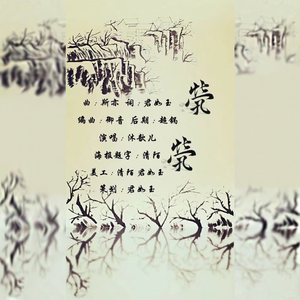 茕茕
曲：斯亦 词：君如玉
编曲：御音 后期：超锅
演唱：沐歌儿
海报题字：清陌
美工：清陌 君如玉
策划：君如玉